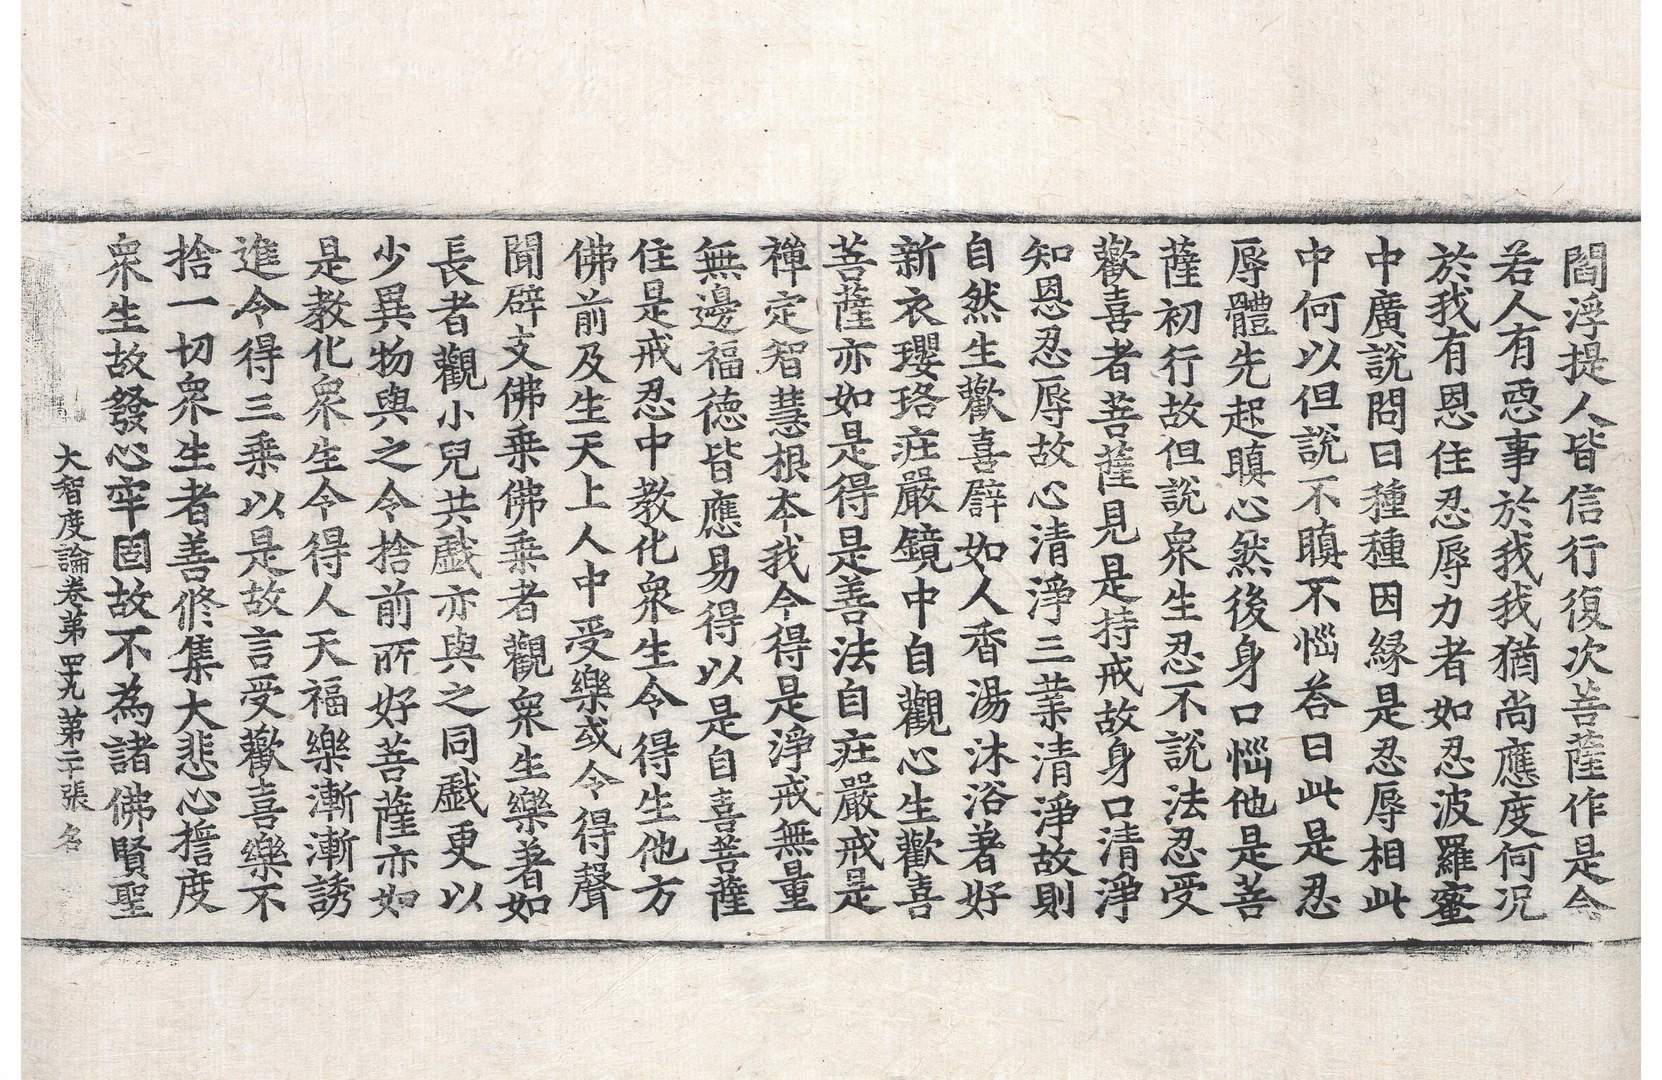 閻浮提人皆信行復次菩薩作是念
若人有惡事於我我猶尚應度何況
於我有恩住忍辱力者如忍波羅蜜
中廣說問曰種種因緣是忍辱相此
中何以但說不瞋不惱答曰此是忍
辱體先起瞋心然後身口惱他是菩
薩初行故但說衆生忍不說法忍受
歡喜者菩薩見是持戒故身口清淨
知恩忍辱故心清淨三業清淨故則
自然生歡喜譬如人香湯沐浴著好
新衣瓔珞莊嚴鏡中自觀心生歡喜
菩薩亦如是得是善法自莊嚴戒是
禪定智慧根本我今得是淨戒無量
無邊福德皆應易得以是自喜菩薩
住是戒忍中教化衆生令得生他方
佛前及生天上人中受樂或令得聲
聞辟支佛乘佛乘者觀衆生樂著如
長者觀小兒共戲亦與之同戲更以
少異物與之令捨前所好菩薩亦如
是教化衆生令得人天福樂漸漸誘
進令得三乘以是故言受歡喜樂不
捨一切衆生者善修集大悲心擔度
衆生故發心牢固故不為諸佛賢聖
大智度論卷第四十九 第二十張 名